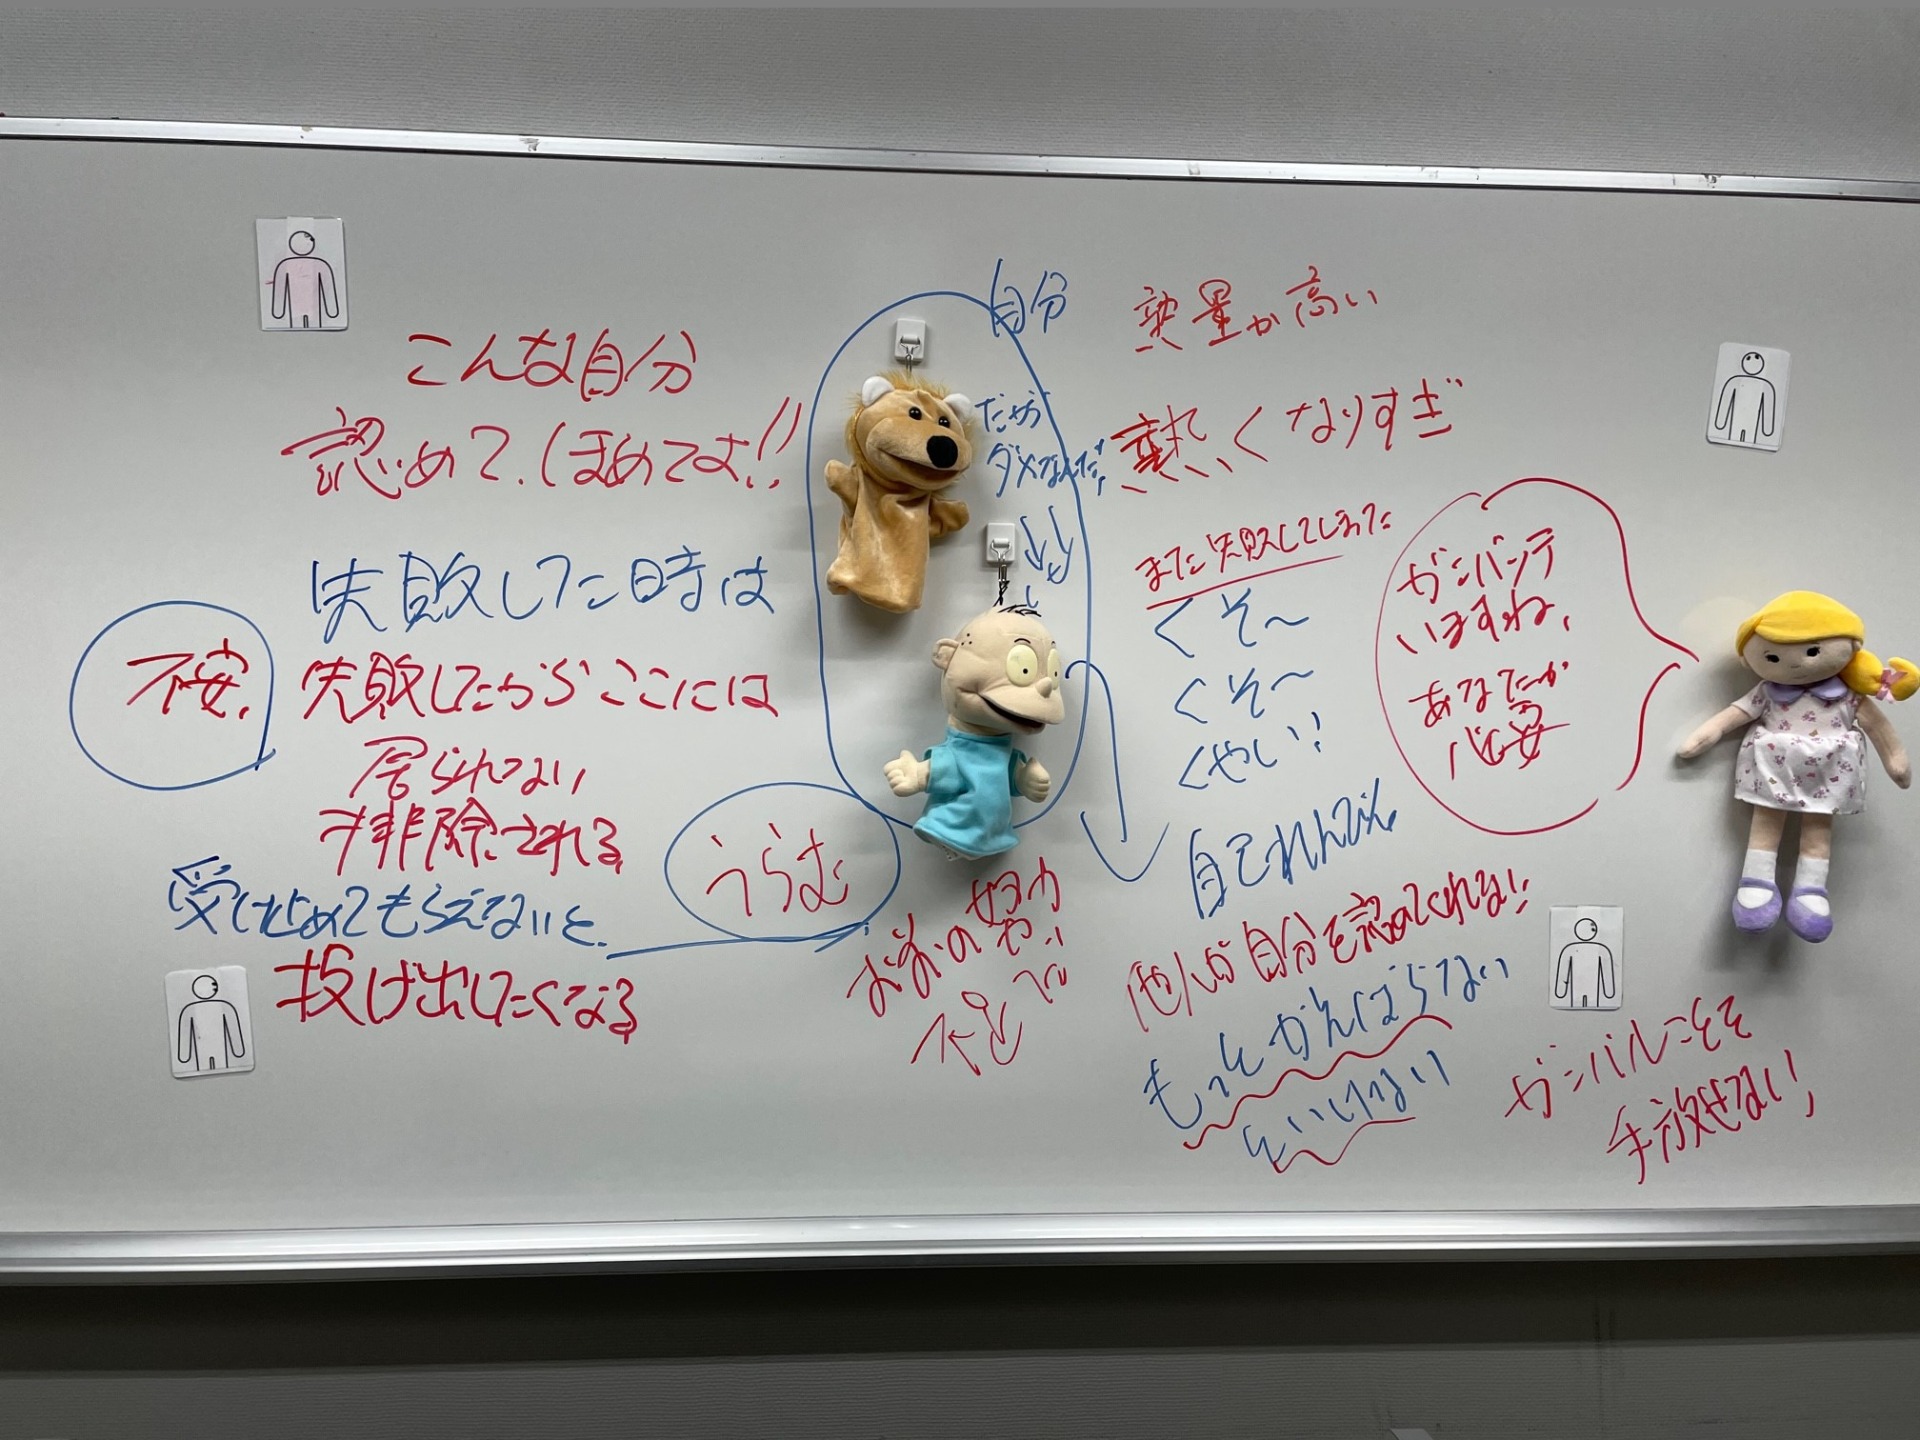 こんな自分
認めて.ほめてよ!!
失敗した時は
不安.
失敗したからここには
居られない
排除される
受け止めてもらえないと.
投げ出したくなる
うらむ
自分
だから
ダメなんだ!
熱量が高い
熱くなりすぎ
また失敗してしまった
くそ〜
くそ〜
くやしい!!
ガンバッテ
いますね.
あなたが
必要
努力
不足
他人が自分を認めてくれない!!
もっとがんばらない
といけない
ガンバルことを
手放せない!